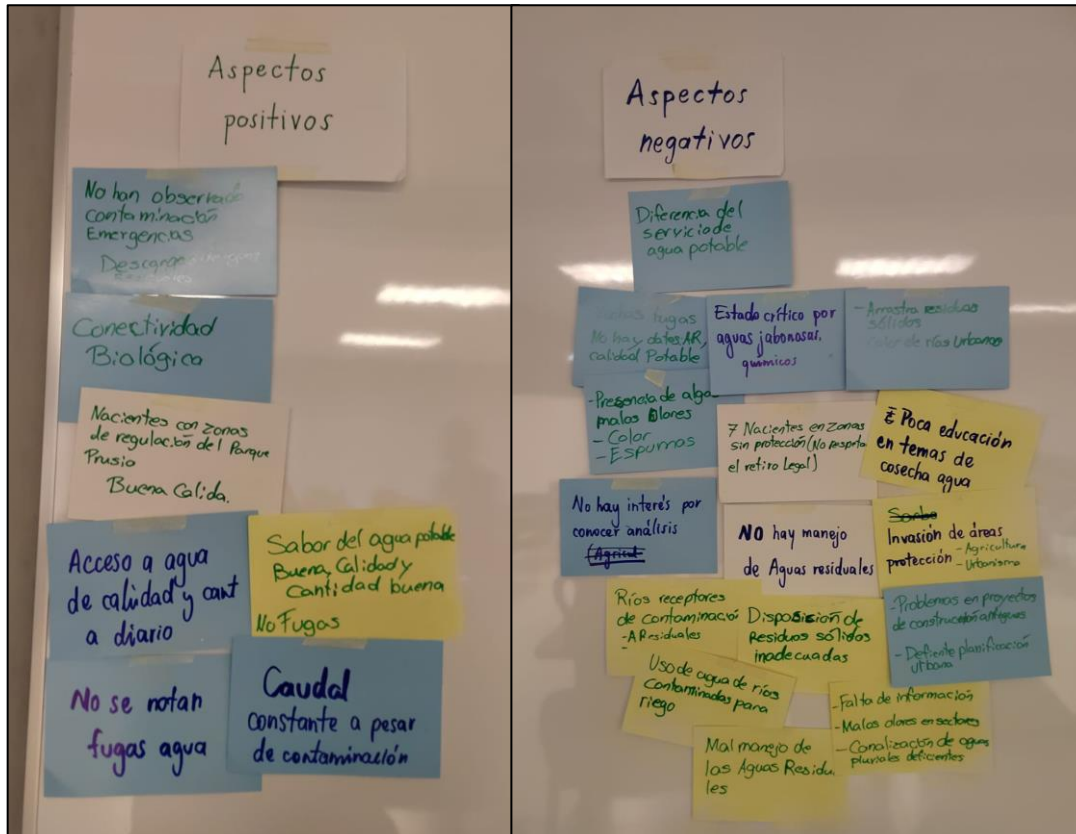 Aspectos
positivos
No han observado
contaminación
Emergencias
Conectividad
Biológica
Nacientes con zonas
de regulación del Parque
Prusio
Buena Calida.
Acceso a agua
de calidad y cant
a diario
Sabor del agua potable
Buena, Calidad y
Cantidad buena
No Fugas
No se notan
fugas agua
Caudal
constante a pesar
de contaminación
Aspectos
negativos
Diferencia del
servicio de
agua potable
fugas
No hay datos AR,
calidad Potable
Estado crítico por
aguas jabonosas.
químicos
- Arrastra residuos
sólidos
Color de ríos Urbanos
- Presencia de alga
malos Olores
- Color
- Espumas
7 Nacientes en zonas
sin protección (No respeta
el retiro legal)
Poca educación
en temas de
cosecha agua
No hay interés por
conocer análisis
NO hay manejo
de Aguas residuales
Invasión de áreas
protección - Agricultura
- Urbanismo
Ríos receptores
de contaminació
- A Residuales
Disposición de
Residuos sólidos
inadecuadas
- Problemas en proyectos
de construcción antiguos
- Defiente planificación
urbana
Uso de agua de ríos
Contaminadas para
riego
- Falta de información
- Malos olores en sectores
- Canalización de aguas
pluviales deficientes
Mal manejo de
las Aguas Residu.
les